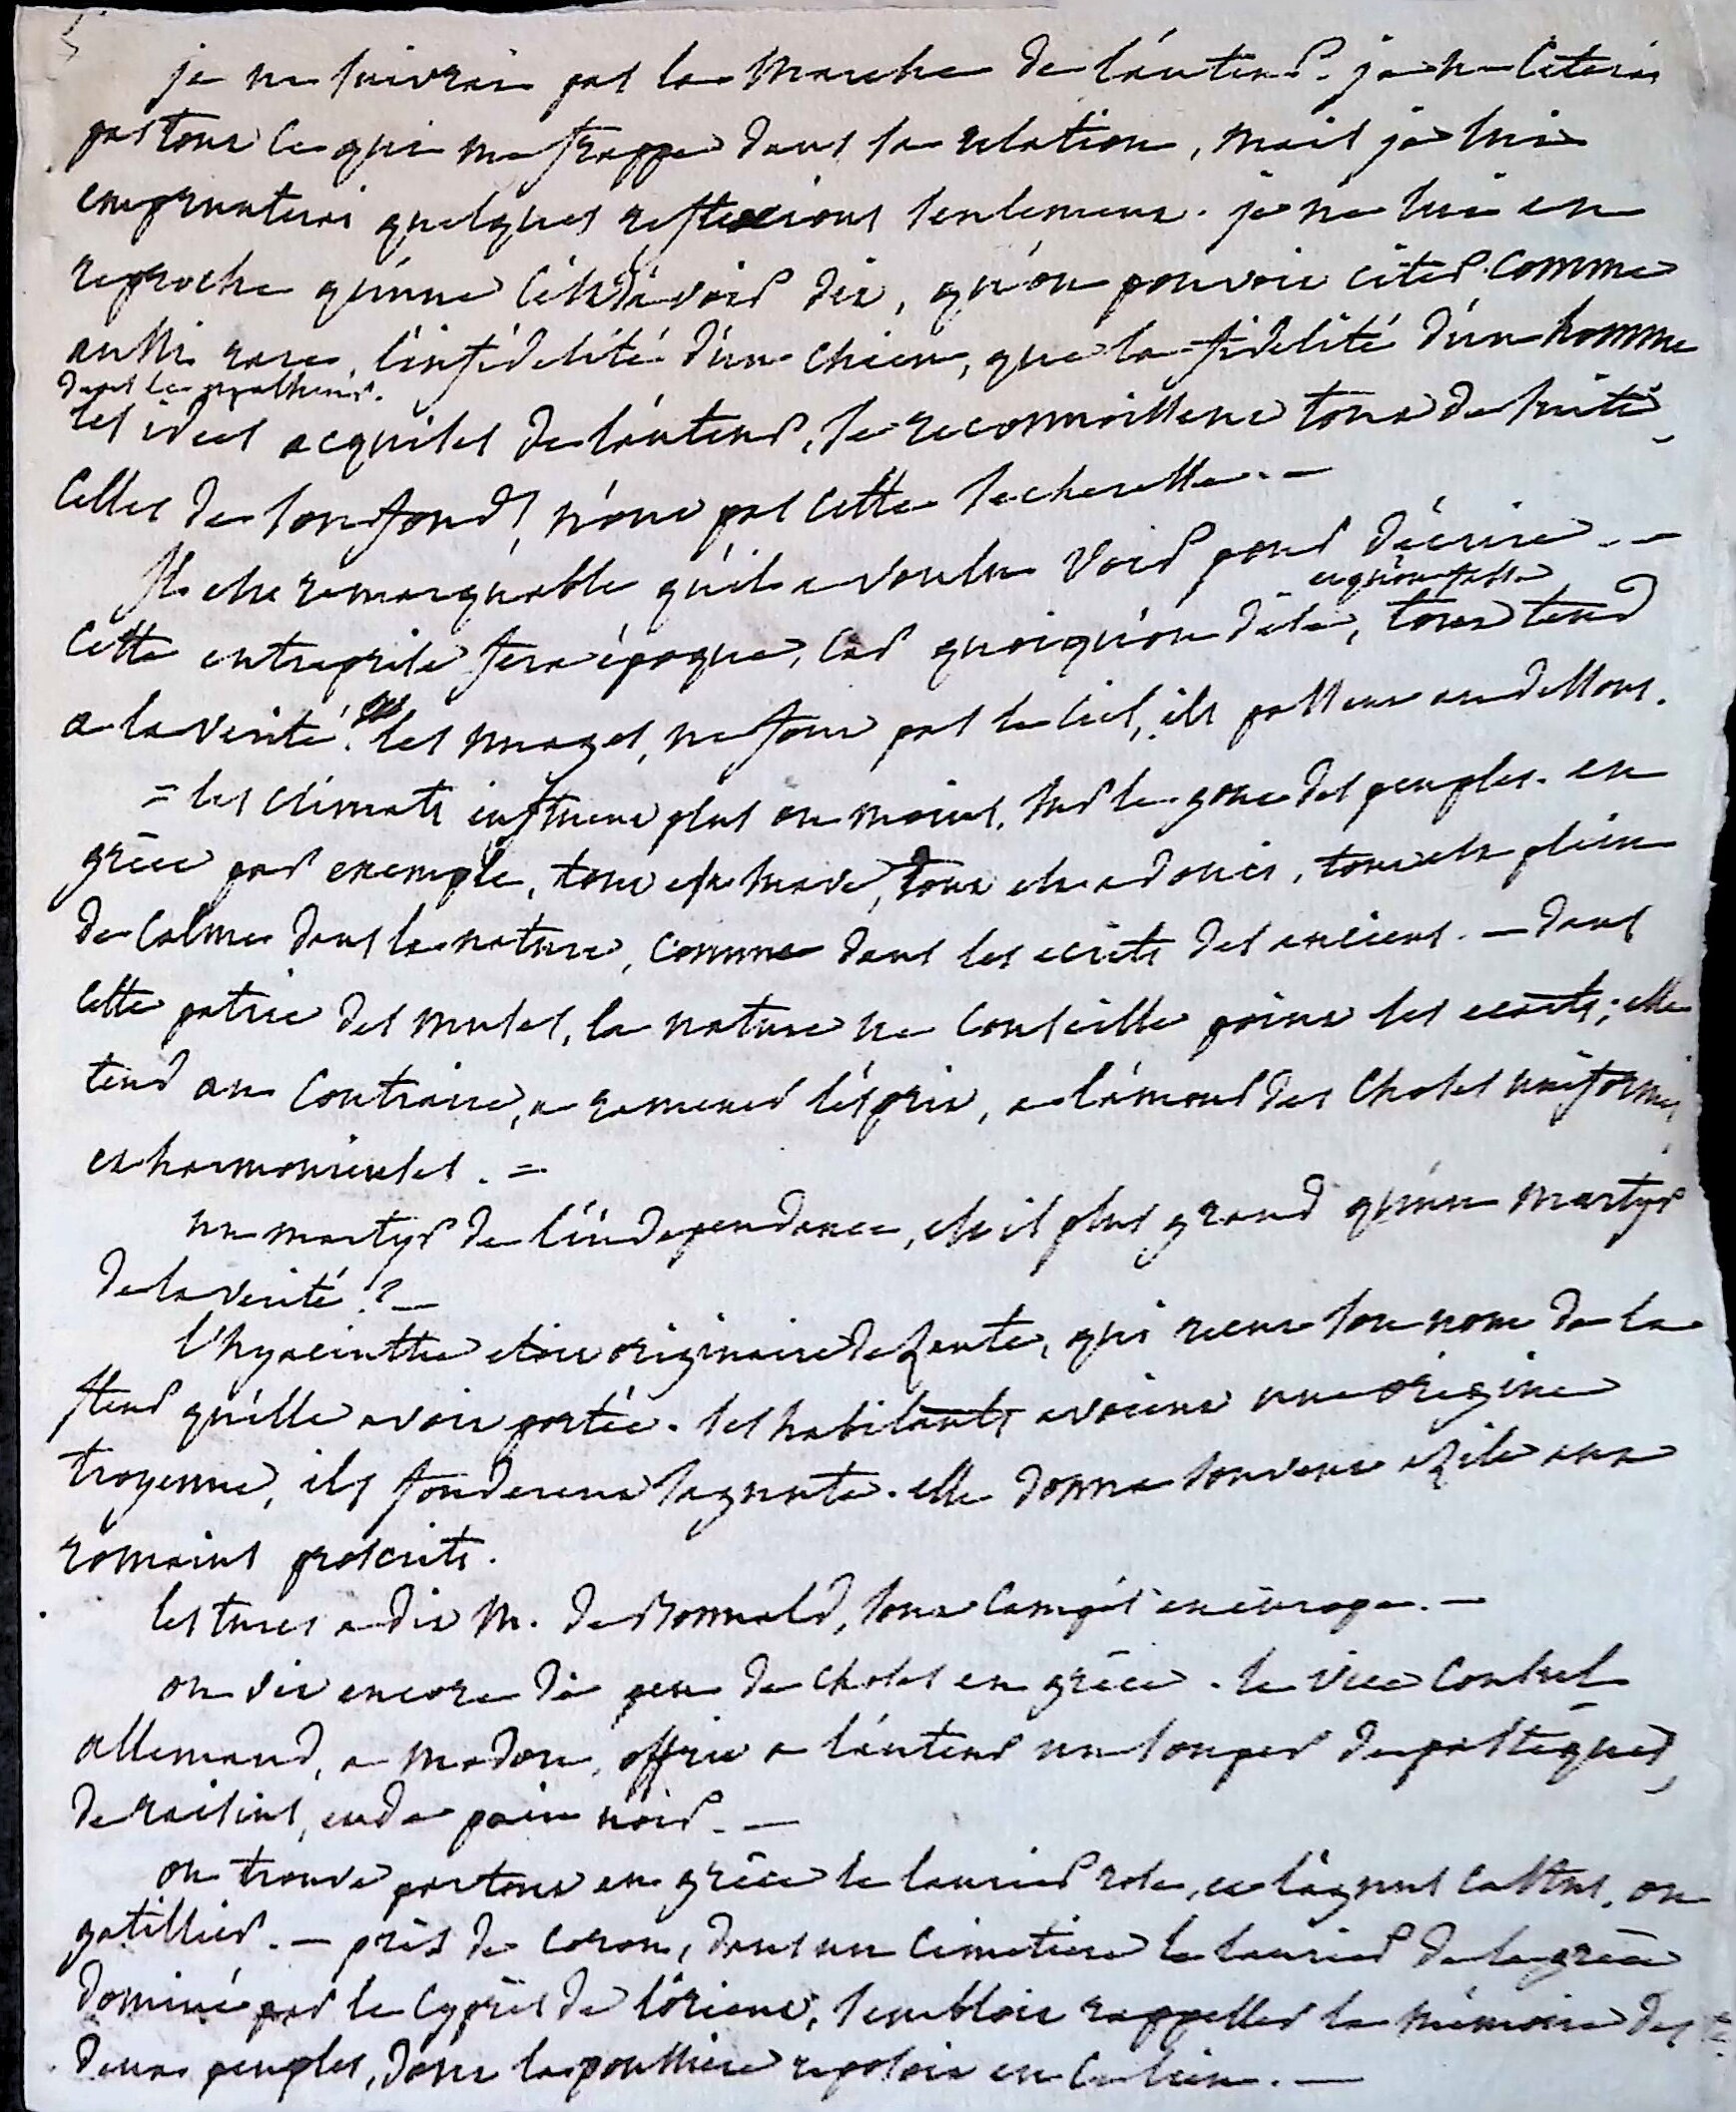 je ne suivrai pas la marche de l'auteur. je ne citerai
pas tout ce qui me frappe dans sa relation, mais je lui
emprunterai quelques reflexions seulement. je ne lui en
reproche qu'une c'est d'avoir dit, qu'on pouvoit citer comme
aussi rare, l'infidelité d'un chien, que la fidelité d'un homme
dans le malheur.
les idees acquises de l'auteur, se reconnoissent tout de suite,
celles de son fond, n'ont pas cette secheresse. —
Il est remarquable qu'il a voulu voir pour décrire. —
et qu'on fasse
cette entreprise fera époque, car quoiqu'on dise, tout tend
a la verité. les nuages, ne sont pas le ciel, ils passent au dessous.
= les climats influent plus ou moins, sur le gout des peuples. en
grèce par exemple, tout est suave, tout est adouci, tout est plein
de calme dans la nature, comme dans les ecrits des anciens. — dans
cette patrie des muses, la nature ne conseille point les ecarts; elle
tend au contraire, a ramener l'esprit, a l'amour des choses uniformes
et harmonieuses. =
un martyr de l'indépendance, est il plus grand qu'un martyr
de la verité? —
l'hyacinthe etoit originaire de Zante, qui recut son nom de la
fleur qu'elle avoit portée. ses habitants avoient une origine
troyenne, ils fonderent sagunte. elle donna souvent azile aux
romains proscrits.
les turcs a dit M. de Bonnald, sont campés en europe. —
on vit encore de peu de choses en grèce. le vice consul
allemand, a modon, offrit a l'auteur un souper de pasteques,
de raisins, et de pain noir. —
on trouve partout en grèce le laurier rose, et l'agnus castus, ou
gatillier. — près de coron, dans un cimetiere le laurier de la grèce
dominé par le cyprès de l'orient, sembloit rappeller la mémoire des
deux peuples, dont la poussiere reposoit en ce lieu. —